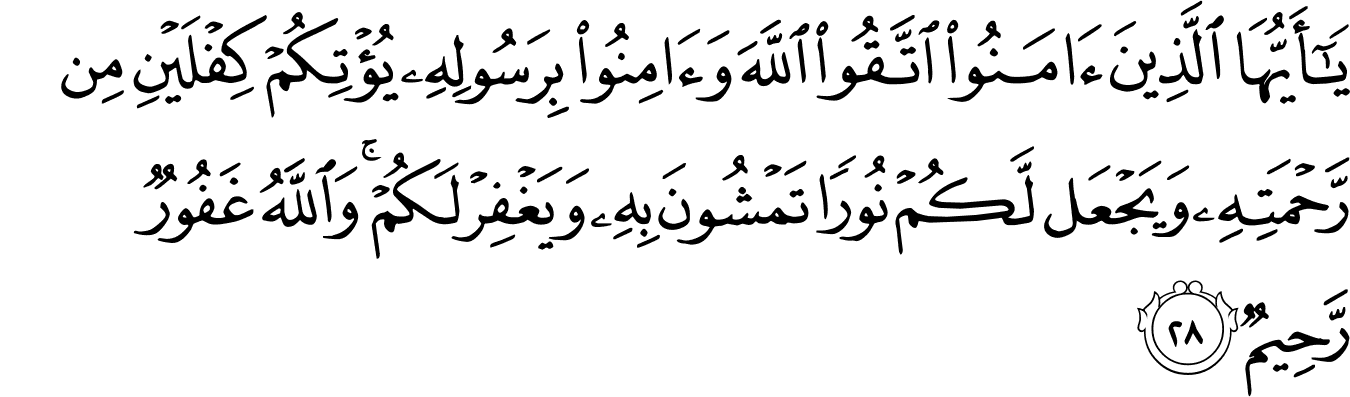 يَٰٓأَيُّهَا ٱلَّذِينَ ءَامَنُوا۟ ٱتَّقُوا۟ ٱللَّهَ وَءَامِنُوا۟ بِرَسُولِهِۦ يُؤْتِكُمْ كِفْلَيْنِ مِن
رَّحْمَتِهِۦ وَيَجْعَل لَّكُمْ نُورًا تَمْشُونَ بِهِۦ وَيَغْفِرْ لَكُمْ ۚ وَٱللَّهُ غَفُورٌ
رَّحِيمٌ ٢٨